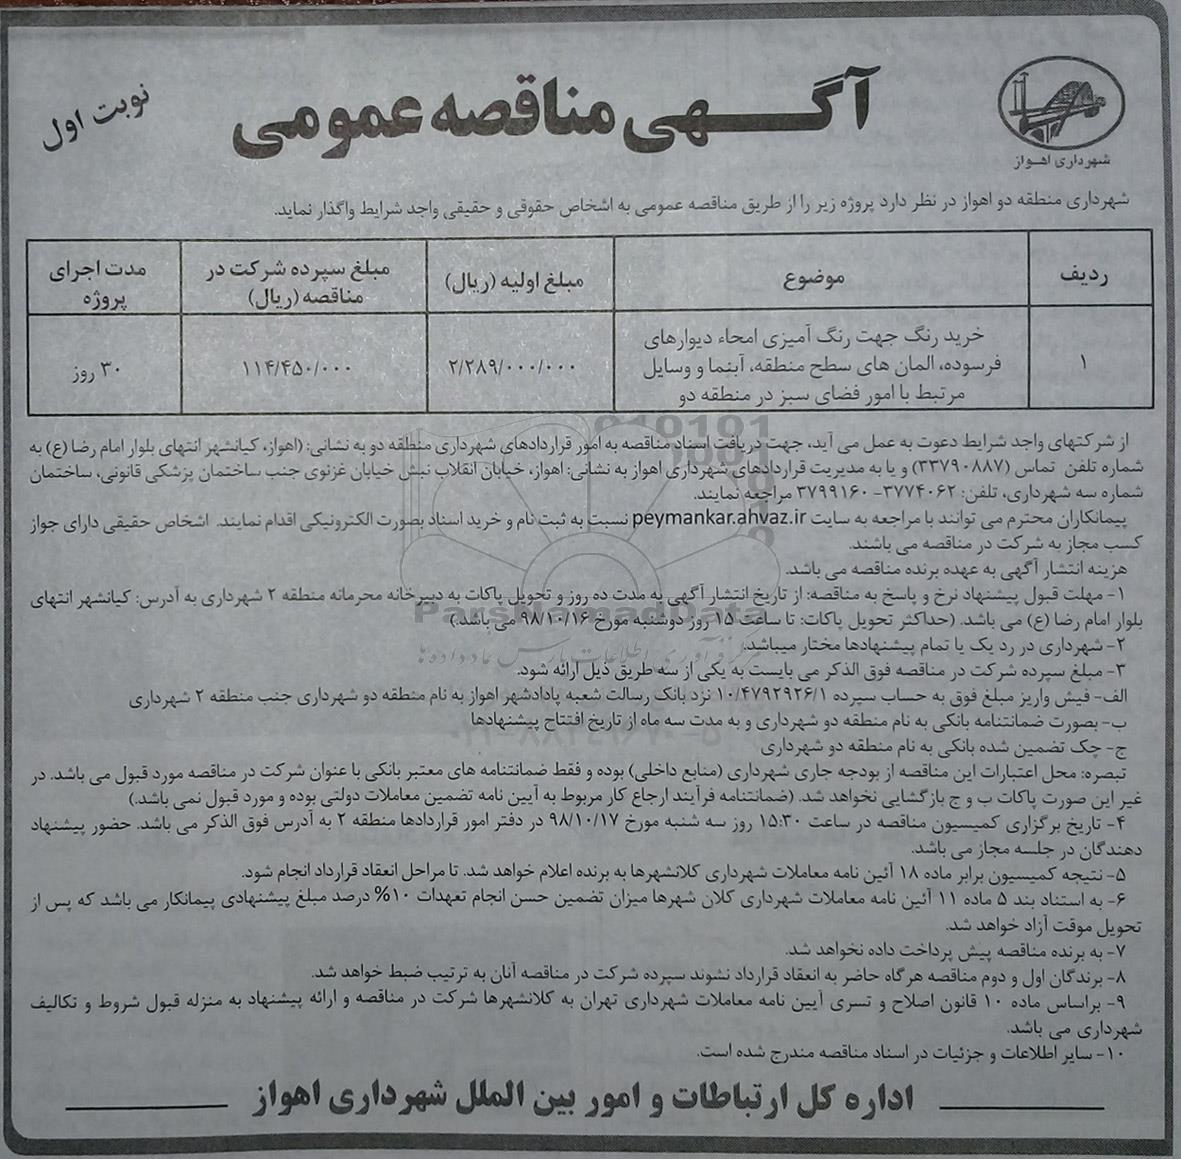 شهرداری اهواز
آگهی مناقصه عمومی
نوبت اول
شهرداری منطقه دو اهواز در نظر دارد پروژه زیر را از طریق مناقصه عمومی به اشخاص حقوقی و حقیقی واجد شرایط واگذار نماید.
ردیف
موضوع
مبلغ اولیه (ریال)
مبلغ سپرده شرکت در
مناقصه (ریال)
مدت اجرای
پروژه
۱
خرید رنگ جهت رنگ آمیزی امحاء دیوارهای
فرسوده، المان های سطح منطقه، آبنما و وسایل
مرتبط با امور فضای سبز در منطقه دو
۲/۲۸۹/۰۰۰/۰۰۰
۱۱۴/۴۵۰/۰۰۰
۳۰ روز
از شرکتهای واجد شرایط دعوت به عمل می آید، جهت دریافت اسناد مناقصه به امور قراردادهای شهرداری منطقه دو به نشانی: (اهواز، کیانشهر انتهای بلوار امام رضا (ع) به
شماره تلفن تماس (۳۳۷۹۰۸۸۷) و یا به مدیریت قراردادهای شهرداری اهواز به نشانی: اهواز، خیابان انقلاب نبش خیابان غزنوی جنب ساختمان پزشکی قانونی، ساختمان
شماره سه شهرداری، تلفن: ۳۷۷۴۰۶۲- ۳۷۹۹۱۶۰ مراجعه نمایند.
پیمانکاران محترم می توانند با مراجعه به سایت peymankar.ahvaz.ir نسبت به ثبت نام و خرید اسناد بصورت الکترونیکی اقدام نمایند. اشخاص حقیقی دارای جواز
کسب مجاز به شرکت در مناقصه می باشند.
هزینه انتشار آگهی به عهده برنده مناقصه می باشد.
۱- مهلت قبول پیشنهاد نرخ و پاسخ به مناقصه: از تاریخ انتشار آگهی به مدت ده روز و تحویل پاکات به دبیرخانه محرمانه منطقه ۲ شهرداری به آدرس: کیانشهر انتهای
بلوار امام رضا (ع) می باشد. (حداکثر تحویل پاکات: تا ساعت ۱۵ روز دوشنبه مورخ ۹۸/۱۰/۱۶ می باشد.)
۲- شهرداری در رد یک یا تمام پیشنهادها مختار میباشد.
۳- مبلغ سپرده شرکت در مناقصه فوق الذکر می بایست به یکی از سه طریق ذیل ارائه شود.
الف- فیش واریز مبلغ فوق به حساب سپرده ۱۰/۴۷۹۲۹۲۶/۱ نزد بانک رسالت شعبه پادادشهر اهواز به نام منطقه دو شهرداری جنب منطقه ۲ شهرداری
ب- بصورت ضمانتنامه بانکی به نام منطقه دو شهرداری و به مدت سه ماه از تاریخ افتتاح پیشنهادها
ج- چک تضمین شده بانکی به نام منطقه دو شهرداری
تبصره: محل اعتبارات این مناقصه از بودجه جاری شهرداری (منابع داخلی) بوده و فقط ضمانتنامه های معتبر بانکی با عنوان شرکت در مناقصه مورد قبول می باشد. در
غیر این صورت پاکات ب و ج بازگشایی نخواهد شد. (ضمانتنامه فرآیند ارجاع کار مربوط به آیین نامه تضمین معاملات دولتی بوده و مورد قبول نمی باشد.)
۴- تاریخ برگزاری کمیسیون مناقصه در ساعت ۱۵:۳۰ روز سه شنبه مورخ ۹۸/۱۰/۱۷ در دفتر امور قراردادها منطقه ۲ به آدرس فوق الذکر می باشد. حضور پیشنهاد
دهندگان در جلسه مجاز می باشد.
۵- نتیجه کمیسیون برابر ماده ۱۸ آئین نامه معاملات شهرداری کلانشهرها به برنده اعلام خواهد شد. تا مراحل انعقاد قرارداد انجام شود.
۶- به استناد بند ۵ ماده ۱۱ آئین نامه معاملات شهرداری کلان شهرها میزان تضمین حسن انجام تعهدات ۱۰% درصد مبلغ پیشنهادی پیمانکار می باشد که پس از
تحویل موقت آزاد خواهد شد.
۷- به برنده مناقصه پیش پرداخت داده نخواهد شد.
۸- برندگان اول و دوم مناقصه هرگاه حاضر به انعقاد قرارداد نشوند سپرده شرکت در مناقصه آنان به ترتیب ضبط خواهد شد.
۹- براساس ماده ۱۰ قانون اصلاح و تسری آیین نامه معاملات شهرداری تهران به کلانشهرها شرکت در مناقصه و ارائه پیشنهاد به منزله قبول شروط و تکالیف
شهرداری می باشد.
۱۰- سایر اطلاعات و جزئیات در اسناد مناقصه مندرج شده است.
اداره کل ارتباطات و امور بین الملل شهرداری اهواز
ParsNamadData